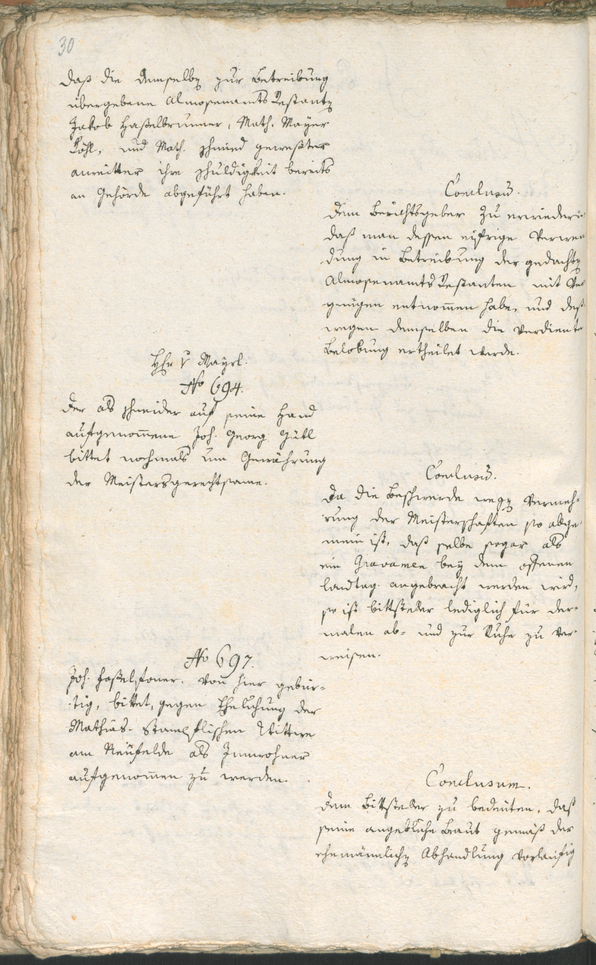 30
daß die demselben zur Betreibung
übergebene Almosenamts Restanten
Jakob Haßelbrunner, Math. Mayer
und Math. Schmied gewester
ihre Schuldigkeit bereits
an Gehörde abgeführt haben.
Conclusum.
Dem Berichtsgeber zu erwiedern
daß man dessen eifrige Verwen
dung in Betreibung der gedachten
Almosenamts Restanten mit Ver
gnügen entnommen habe, und deß
wegen demselben die verdiente
Belobung ertheilet werde.
Mayrl.
No 694.
Der als Schneider auf seine Hand
aufgenommene Joh. Georg Gütl
bittet nochmals um Gewährung
der Meistersgerechtsame.
Conclusum.
Da die Beschwerde wegen Vermeh-
rung der Meisterschaften so allge-
mein ist, daß selbe sogar als
ein Gravamen bey dem offenen
Landtag angebracht werden wird,
so ist Bittsteller lediglich für der-
malen ab- und zur Ruhe zu ver
weisen.
No 697.
Joh. Haßelsteiner. von hier gebür-
tig, bittet, gegen Ehelichung der
Mathias Wittwe
am Neüfelde als Innwohner
aufgenommen zu werden.
Conclusum.
Dem Bittsteller zu bedeuten, daß
seine angebliche Braut gemäß der
ehemännlichen Abhandlung vorläufig